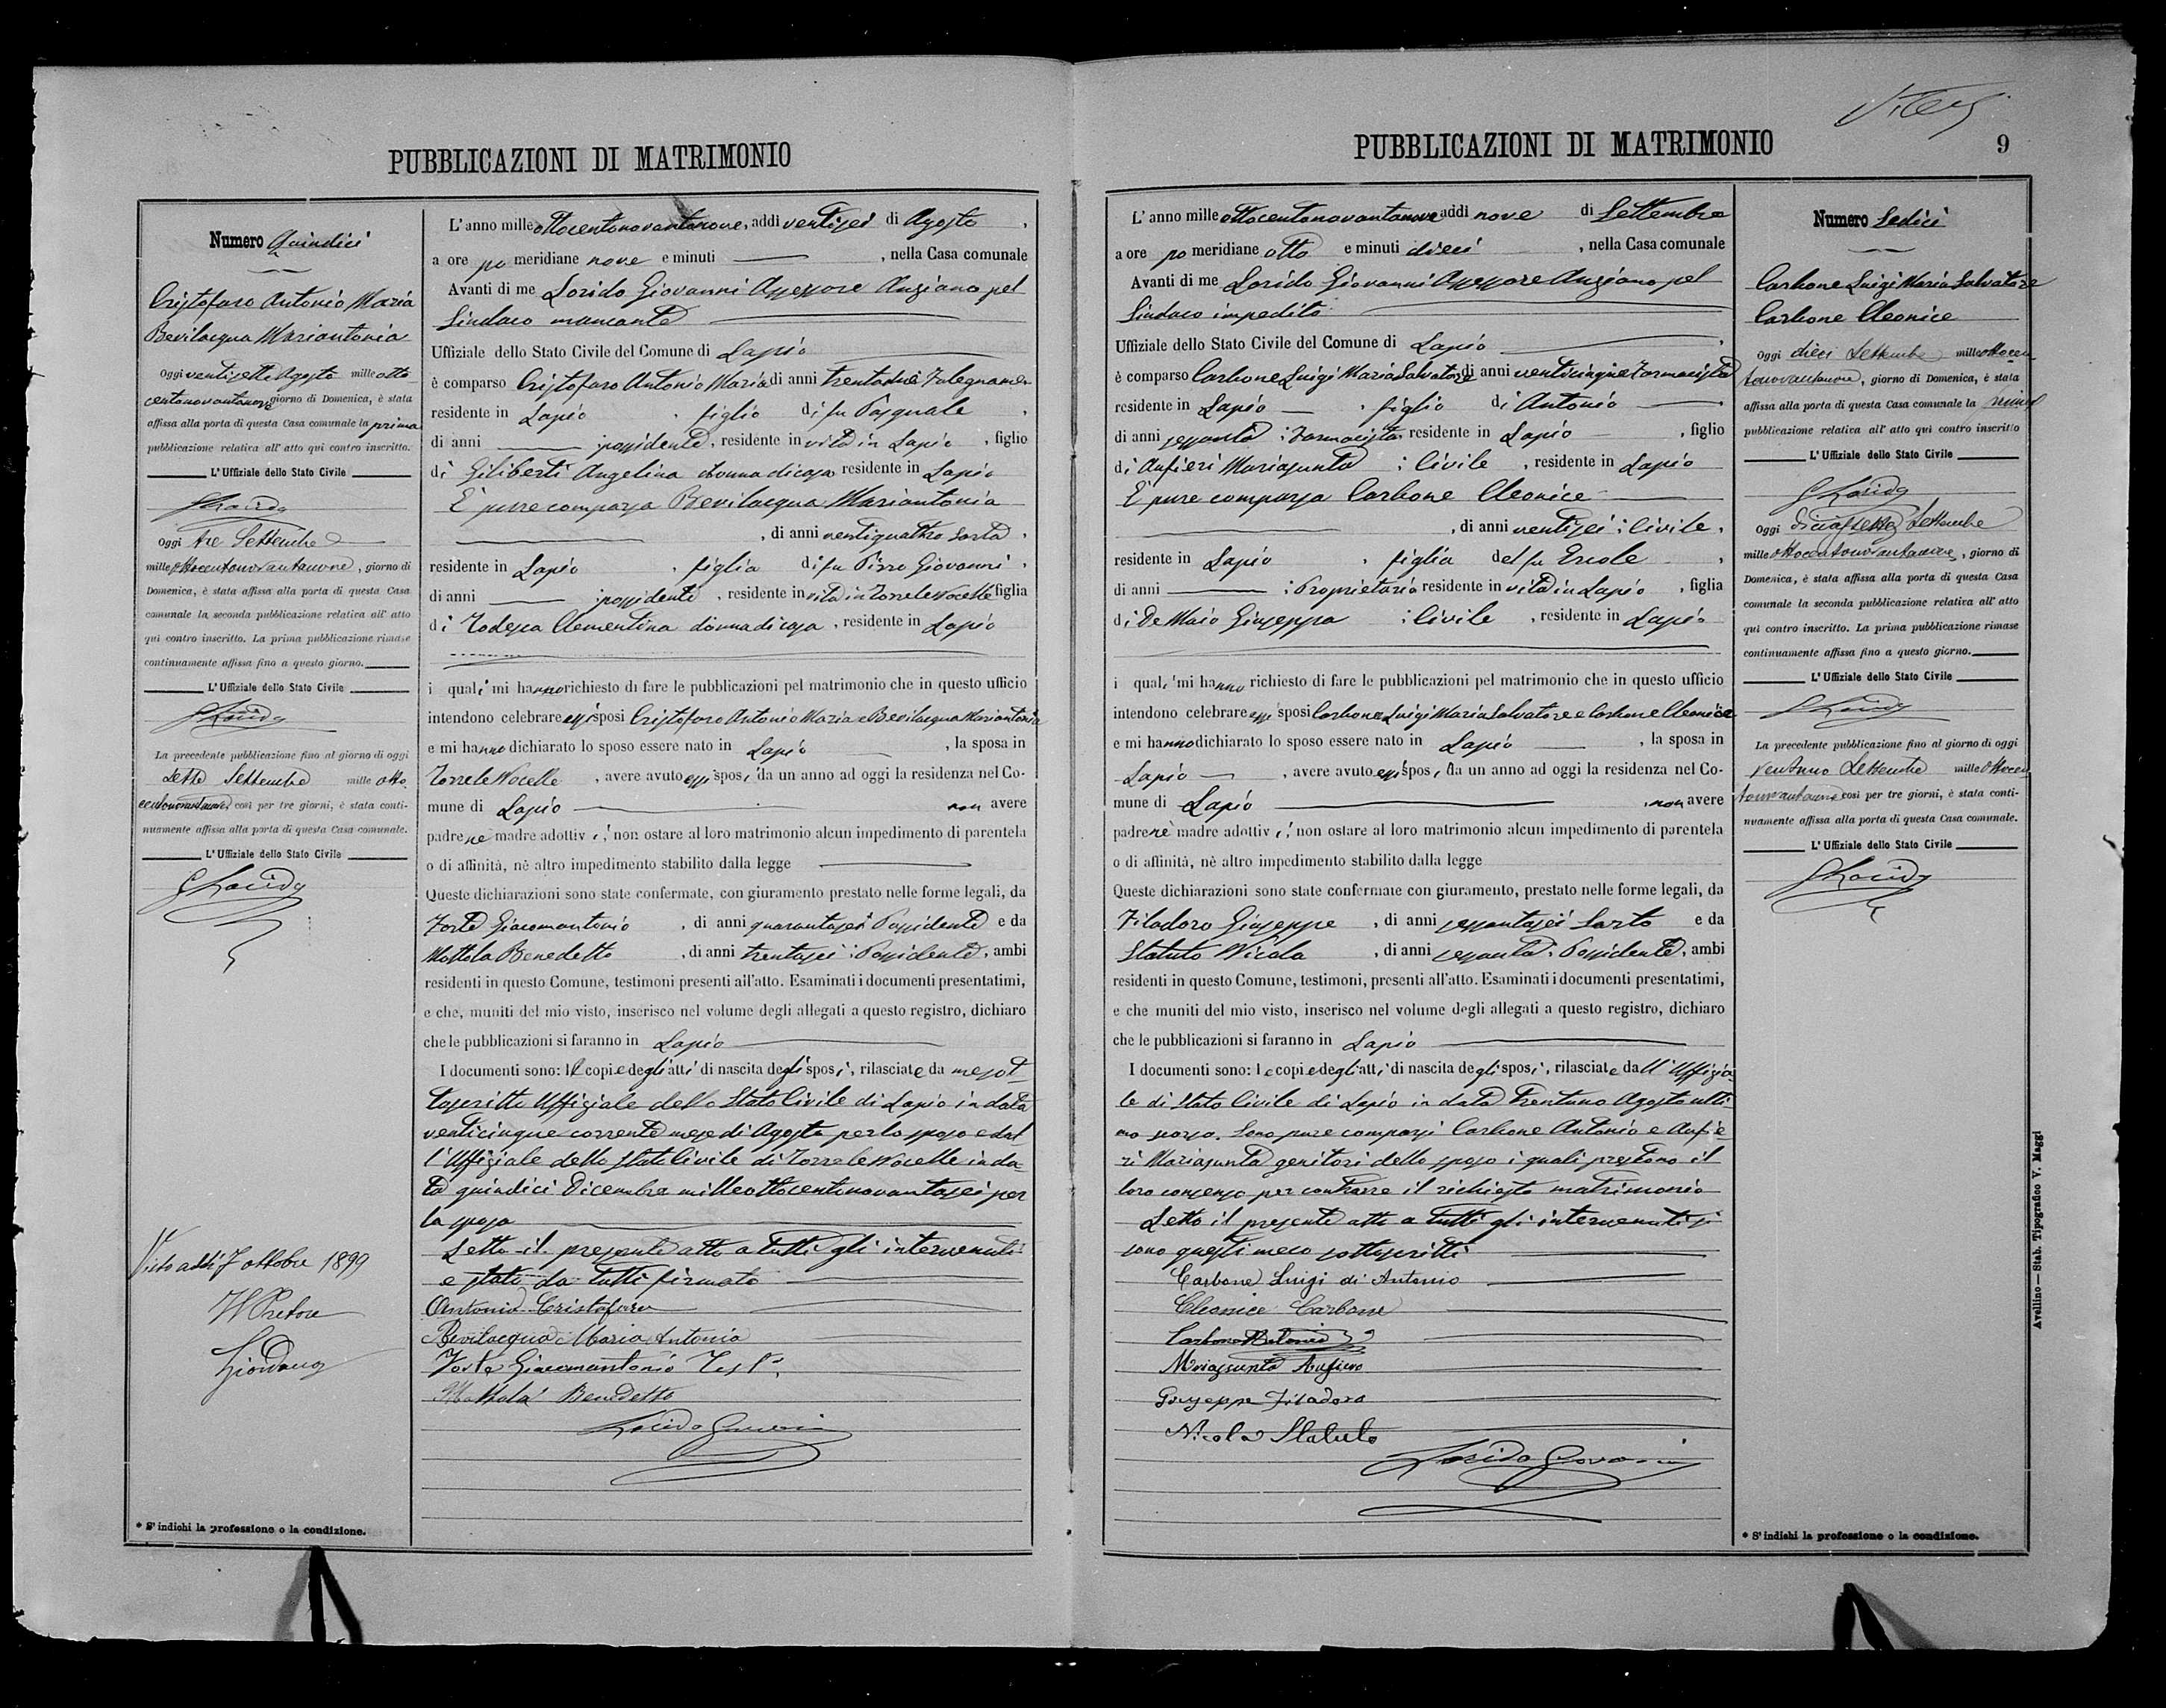 PUBBLICAZIONI DI MATRIMONIO
Numero Quindici
Cristofaro Antonio Maria
Bevilacqua Mariantonia
Oggi ventisette Agosto mille otto
centonovantanove giorno di Domenica, è stata
affissa alla porta di questa Casa comunale la prima
pubblicazione relativa all' atto qui contro inscritto.
L' Uffiziale dello Stato Civile
GLorido
Oggi tre Settembre
mille ottocentonovantanove, giorno di
Domenica, è stata affissa alla porta di questa Casa
comunale la seconda pubblicazione relativa all' atto
qui contro inscritto. La prima pubblicazione rimase
continuamente affissa fino a questo giorno.
L' Uffiziale dello Stato Civile
GLorido
La precedente pubblicazione fino al giorno di oggi
Sette Settembre mille otto
centonovantanove così per tre giorni, è stata conti-
nuamente affissa alla porta di questa Casa comunale.
L' Uffiziale dello Stato Civile
GLorido
Visto addì 7 ottobre 1899
Il Pretore
Giordano
* S' indichi la professione o la condizione.
L' anno mille ottocentonovantanove, addì ventisei di Agosto,
a ore po meridiane nove e minuti , nella Casa comunale
Avanti di me Lorido Giovanni Assessore Anziano pel
Sindaco mancante
Uffiziale dello Stato Civile del Comune di Lapio
è comparso Cristofaro Antonio Maria di anni trentadue Falegname
residente in Lapio, figlio di fu Pasquale,
di anni possidente, residente in vita in Lapio, figlio
di Giliberti Angelina donna di casa residente in Lapio
E' pure comparsa Bevilacqua Mariantonia
, di anni ventiquattro sarta,
residente in Lapio, figlia di fu Pirro Giovanni,
di anni possidente, residente in vita in Torre le Nocelle figlia
di Todesca Clementina donna di casa, residente in Lapio
i quali mi hanno richiesto di fare le pubblicazioni pel matrimonio che in questo ufficio
intendono celebrare essi sposi Cristofaro Antonio Maria e Bevilacqua Mariantonia
e mi hanno dichiarato lo sposo essere nato in Lapio, la sposa in
Torre le Nocelle, avere avuto essi sposi da un anno ad oggi la residenza nel Co-
mune di Lapio non avere
padre nè madre adottivi, non ostare al loro matrimonio alcun impedimento di parentela
o di affinità, nè altro impedimento stabilito dalla legge
Queste dichiarazioni sono state confermate, con giuramento prestato nelle forme legali, da
Forte Giacomantonio, di anni quarantasei Possidente e da
Mottola Benedetto, di anni trentasei: Possidente, ambi
residenti in questo Comune, testimoni presenti all'atto. Esaminati i documenti presentatimi,
e che, muniti del mio visto, inserisco nel volume degli allegati a questo registro, dichiaro
che le pubblicazioni si faranno in Lapio
I documenti sono: le copie degli atti di nascita degli sposi, rilasciate da me sot-
toscritto Uffiziale dello Stato Civile di Lapio in data
venticinque corrente mese di Agosto per lo sposo e dal-
l'Uffiziale dello Stato Civile di Torre le Nocelle in da-
ta quindici Dicembre milleottocentonovantasei per
la sposa
Letto il presente atto a tutti gli intervenuti
e stato da tutti firmato
Antonio Cristofaro
Bevilacqua Maria Antonia
Forte Giacomantonio Test.
Mottola Benedetto
Lorido Giovanni
PUBBLICAZIONI DI MATRIMONIO
9
L' anno mille ottocentonovantanove addì nove di Settembre
a ore po meridiane otto e minuti dieci, nella Casa comunale
Avanti di me Lorido Giovanni Assessore Anziano pel
Sindaco impedito
Uffiziale dello Stato Civile del Comune di Lapio,
è comparso Carbone Luigi Maria Salvatore di anni venticinque Farmacista
residente in Lapio, figlio di Antonio,
di anni sessanta: Farmacista residente in Lapio, figlio
di Aufieri Mariassunta: Civile, residente in Lapio
E' pure comparsa Carbone Cleonice
, di anni ventisei: Civile,
residente in Lapio, figlia del fu Ercole,
di anni : Proprietario residente in vita in Lapio, figlia
di De Maio Giuseppa: Civile, residente in Lapio
i quali mi hanno richiesto di fare le pubblicazioni pel matrimonio che in questo ufficio
intendono celebrare essi sposi Carbone Luigi Maria Salvatore e Carbone Cleonice
e mi hanno dichiarato lo sposo essere nato in Lapio, la sposa in
Lapio, avere avuto essi sposi da un anno ad oggi la residenza nel Co-
mune di Lapio, non avere
padre nè madre adottivi, non ostare al loro matrimonio alcun impedimento di parentela
o di affinità, nè altro impedimento stabilito dalla legge
Queste dichiarazioni sono state confermate con giuramento, prestato nelle forme legali, da
Filadoro Giuseppe, di anni sessantasei Sarto e da
Statuto Nicola, di anni sessanta: Possidente, ambi
residenti in questo Comune, testimoni, presenti all'atto. Esaminati i documenti presentatimi,
e che muniti del mio visto, inserisco nel volume degli allegati a questo registro, dichiaro
che le pubblicazioni si faranno in Lapio
I documenti sono: le copie degli atti di nascita degli sposi, rilasciate dall'Uffizia-
le di Stato Civile di Lapio in data trentuno Agosto ulti-
mo scorso. Sono pure comparsi Carbone Antonio e Aufie-
ri Mariassunta genitori dello sposo i quali prestono il
loro consenso per contrarre il richiesto matrimonio
Letto il presente atto a tutti gli intervenuti si
sono questi meco sottoscritti
Carbone Luigi di Antonio
Cleonice Carbone
Carbone Antonio
Mariassunta Aufiero
Giuseppe Filadoro
Nicola Statuto
Lorido Giovanni
Numero Sedici
Carbone Luigi Maria Salvatore
Carbone Cleonice
Oggi dieci Settembre mille ottocen
tonovantanove, giorno di Domenica, è stata
affissa alla porta di questa Casa comunale la prima
pubblicazione relativa all' atto qui contro inscritto
L' Uffiziale dello Stato Civile
GLorido
Oggi diciassette Settembre
mille ottocentonovantanove, giorno di
Domenica, è stata affissa alla porta di questa Casa
comunale la seconda pubblicazione relativa all' atto
qui contro inscritto. La prima pubblicazione rimase
continuamente affissa fino a questo giorno.
L' Uffiziale dello Stato Civile
GLorido
La precedente pubblicazione fino al giorno di oggi
ventuno Settembre mille ottocen
tonovantanove così per tre giorni, è stata conti-
nuamente affissa alla porta di questa Casa comunale.
L' Uffiziale dello Stato Civile
GLorido
* S' indichi la professione o la condizione.
Avellino — Stab. Tipografico V. Maggi